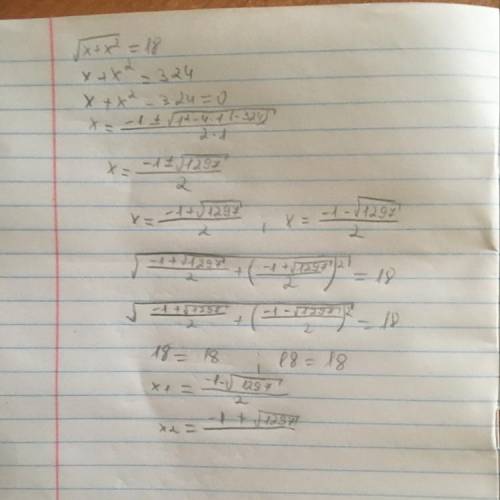 √(x+x²) = 18
x+x² = 324
x+x² - 324 = 0
x = (-1 ± √(1²-4·1·(-324)))/(2·1)
x = (-1 ± √1297)/2
x = (-1+√1297)/2 , x = (-1-√1297)/2
√((-1+√1297)/2 + ((-1+√1297)/2)²) = 18
√((-1+√1297)/2 + ((-1-√1297)/2)²) = 18
18 = 18 ; 18 = 18
x₁ = (-1-√1297)/2
x₂ = (-1+√1297)/